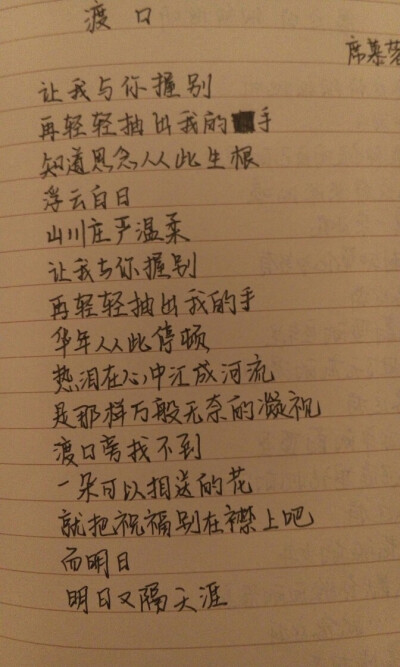 渡口
席慕蓉
让我与你握别
再轻轻抽出我的手
知道思念从此生根
浮云白日
山川庄严温柔
让我与你握别
再轻轻抽出我的手
华年从此停顿
热泪在心中汇成河流
是那样万般无奈的凝视
渡口旁找不到
一朵可以相送的花
就把祝福别在襟上吧
而明日
明日又隔天涯